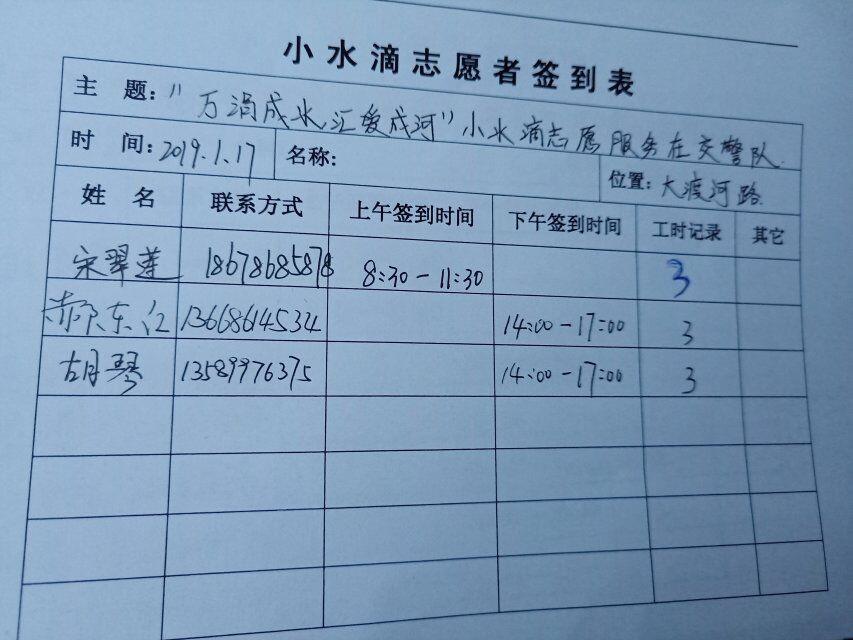 小水滴志愿者签到表
主 题："万涓成水 汇爱成河"小水滴志愿服务在交警队
时 间：2019.1.17 名称： 位置：大渡河路
姓 名 联系方式 上午签到时间 下午签到时间 工时记录 其它
宋翠莲 18678685878 8:30-11:30 3
郝东红 13668614534 14:00-17:00 3
胡琴 13589976375 14:00-17:00 3